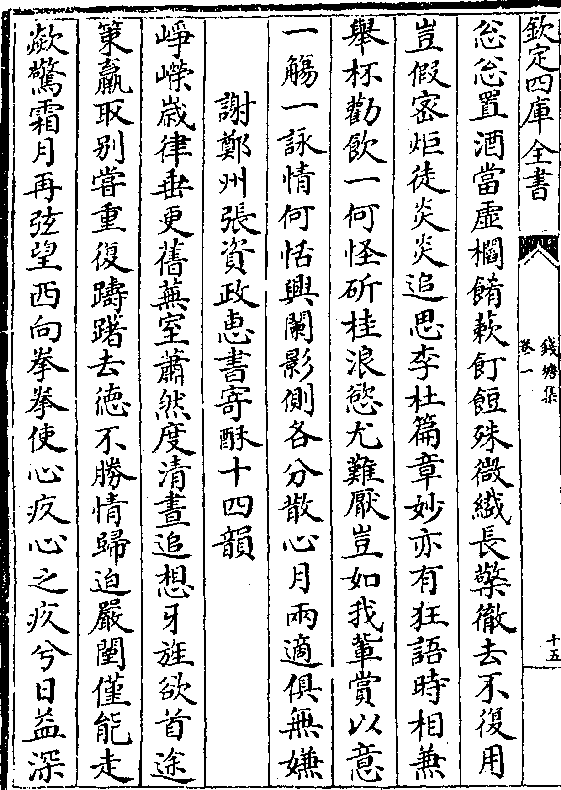 欽定四庫全書
錢塘集
卷一
十五
忩忩置酒當虚櫩餚蔌飣餖殊微纎長檠徹去不復用
豈假宻炬徒炎炎追思李杜篇章妙亦有狂語時相兼
舉杯勸飲一何怪斫桂浪慾尤難厭豈如我輩賞以意
一觴一詠情何恬興闌影側各分散心月兩適俱無嫌
謝鄭州張資政惠書寄酥十四韻
崢嶸歲律垂更舊蕪室蕭然度清晝追想牙旌欲首途
策羸取别嘗重復躊躇去徳不勝情歸迫嚴闉僅能走
歘驚霜月再弦望西向拳拳使心疚心之疚兮日益深